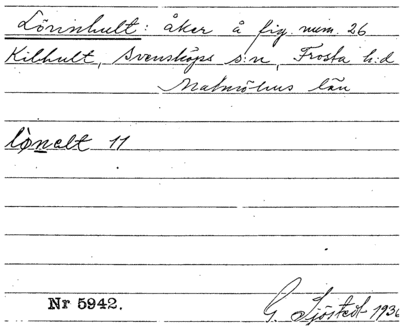 Lönnhult: åker å fig. num. 26
Kilhult, Svensköps s:n, Frosta h:d
Malmöhus län
lönelt 11
Nr 5942.
G. Sjöstedt 1936